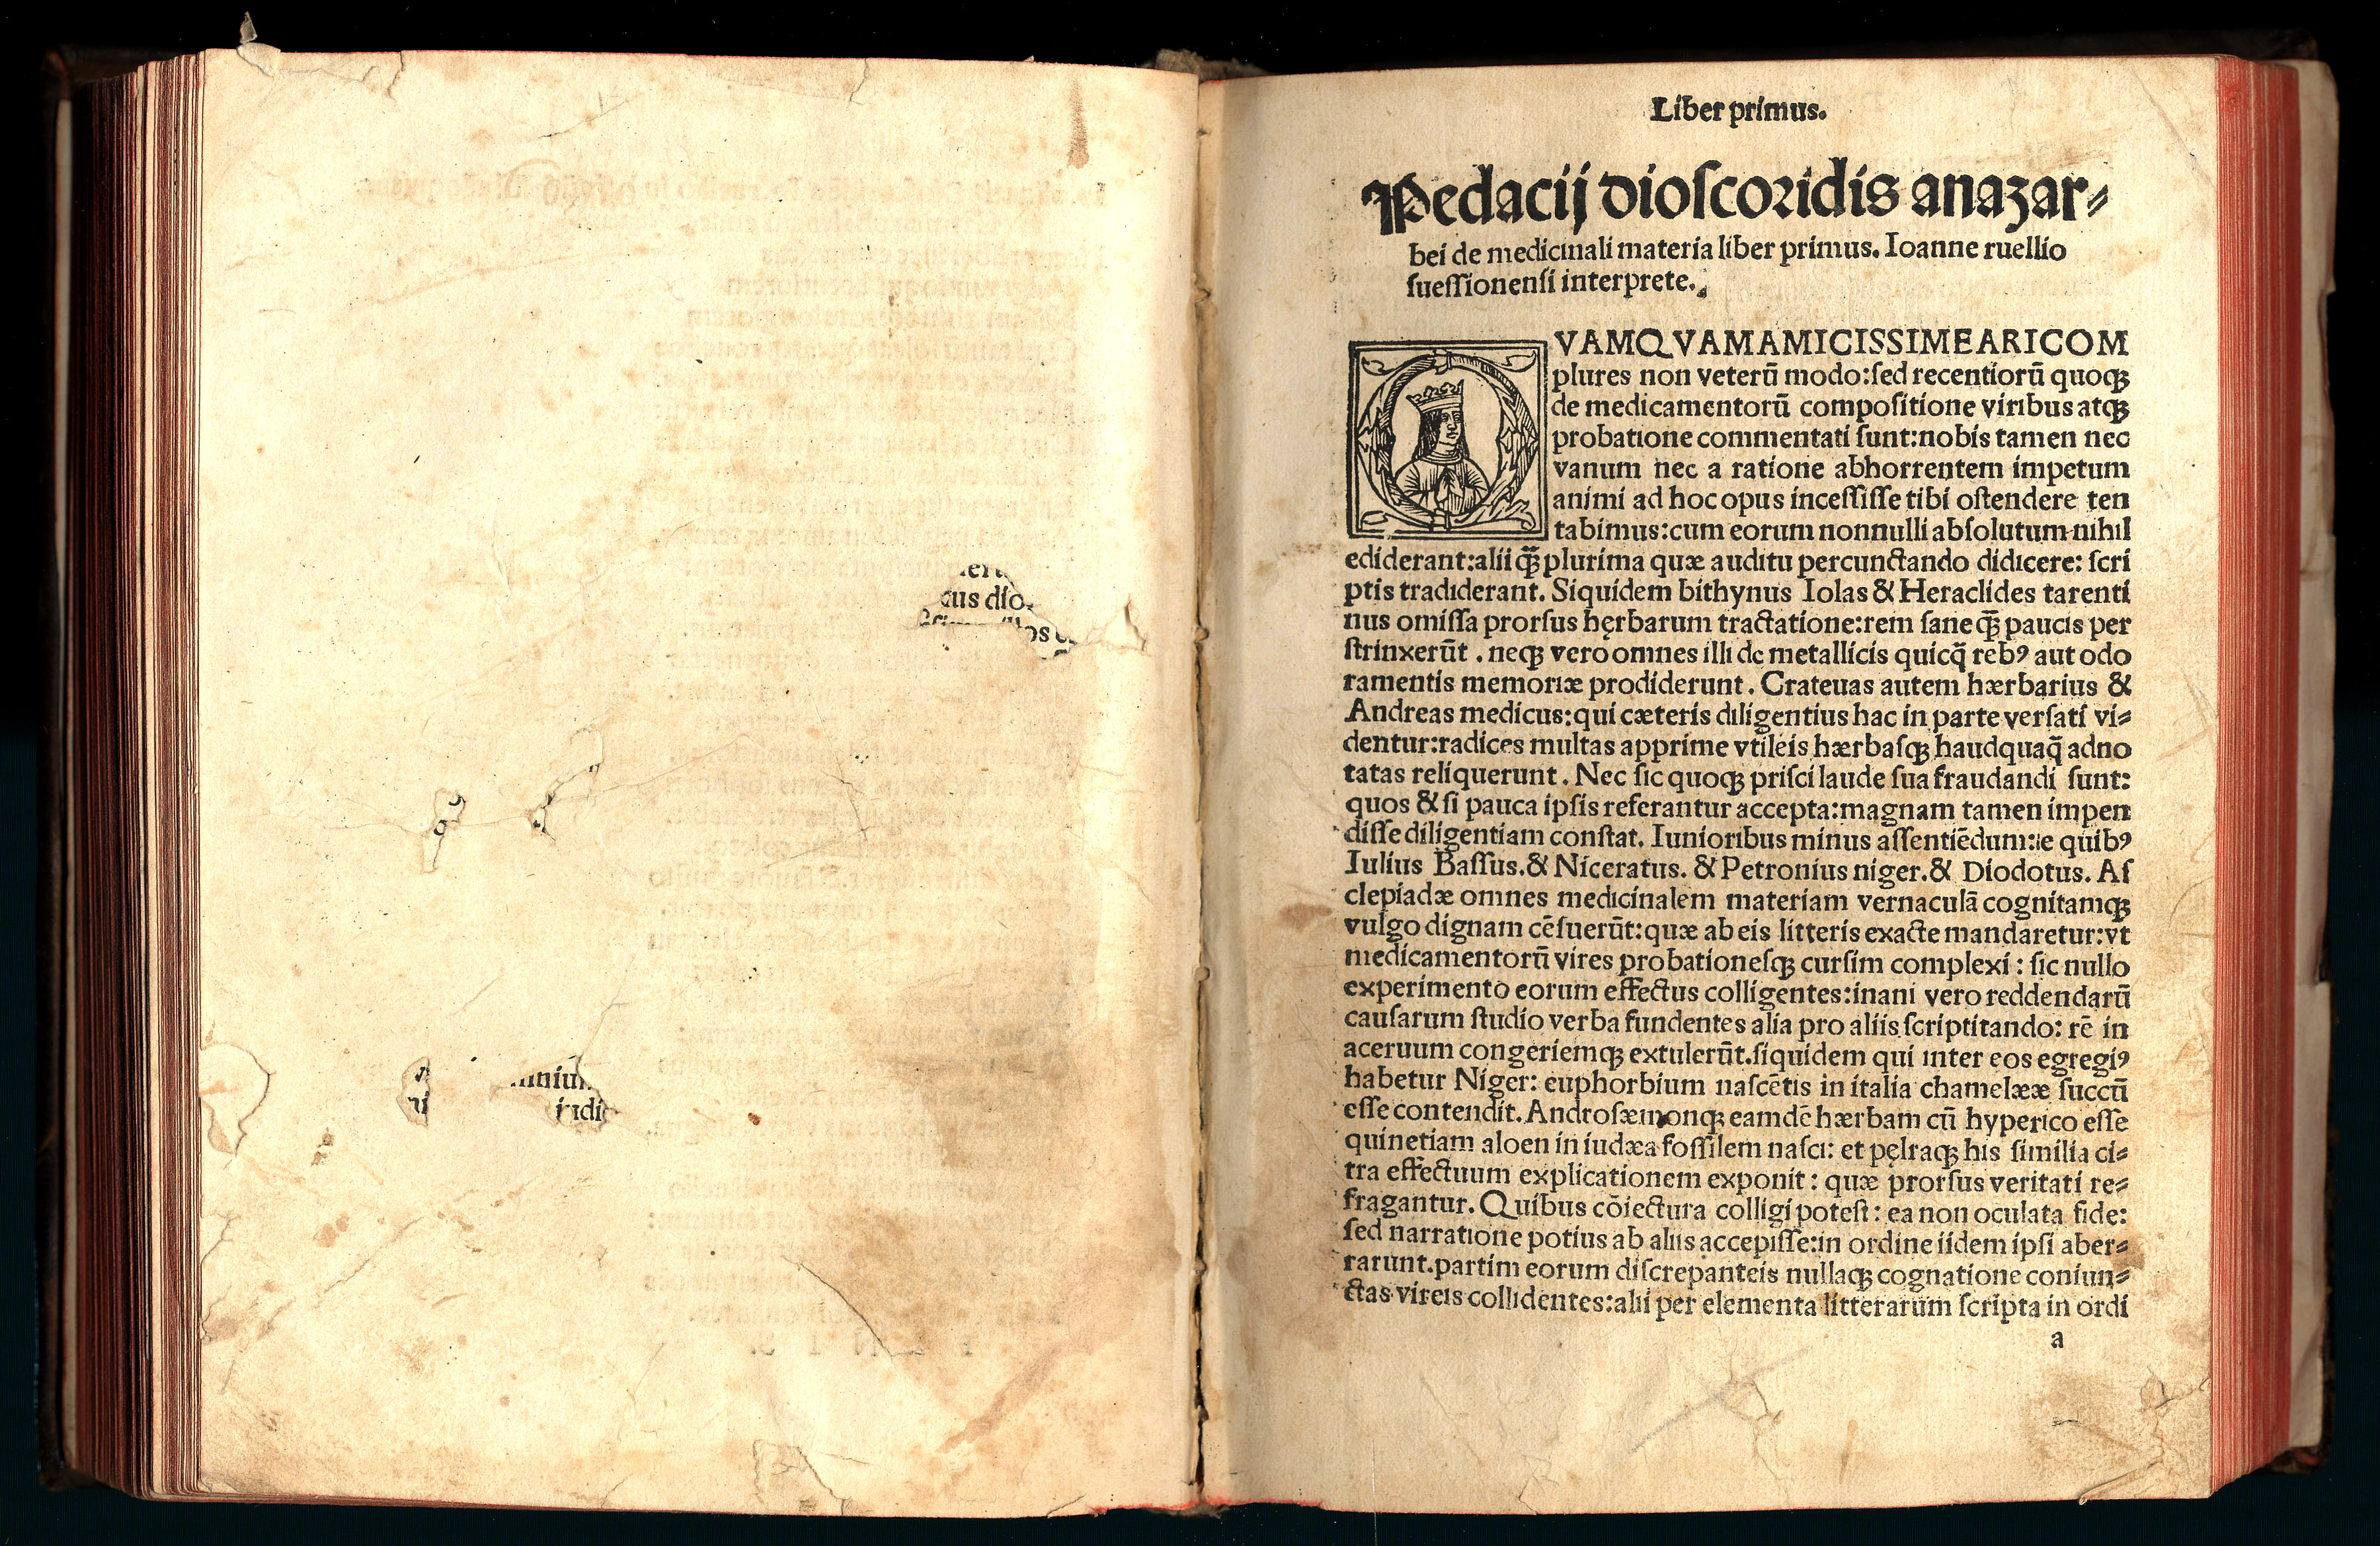 Liber primus.
Pedacij dioſcoridis anazar⸗
bei de medicinali materia liber primus. Ioanne ruellio
ſueſſionenſi interprete.
QVAMQVAMAMICISSIMEARICOM
plures non veterū modo:ſed recentiorū quoqꝫ
de medicamentorū compoſitione viribus atqꝫ
probatione commentati ſunt:nobis tamen nec
vanum nec a ratione abhorrentem impetum
animi ad hoc opus inceſſiſſe tibi oſtendere ten
tabimus:cum eorum nonnulli abſolutum nihil
ediderant:alii qꝫ̄ plurima quæ auditu percunctando didicere: ſcri
ptis tradiderant. Siquidem bithynus Iolas & Heraclides tarenti
nus omiſſa prorſus hęrbarum tractatione:rem ſane qꝫ̄ paucis per
ſtrinxerūt . neqꝫ vero omnes illi de metallicis quicq̄ reb⁹ aut odo
ramentis memoriæ prodiderunt . Crateuas autem hærbarius &
Andreas medicus:qui cæteris diligentius hac in parte verſati vi⸗
dentur:radices multas apprime vtileis hærbaſqꝫ haudquaq̄ adno
tatas reliquerunt . Nec ſic quoqꝫ priſci laude ſua fraudandi ſunt:
quos & ſi pauca ipſis referantur accepta:magnam tamen impen
diſſe diligentiam conſtat. Iunioribus minus aſſentiēdum:ie quib⁹
Iulius Baſſus.& Niceratus. & Petronius niger.& Diodotus. Aſ
clepiadæ omnes medicinalem materiam vernaculā cognitamqꝫ
vulgo dignam cēſuerūt:quæ ab eis litteris exacte mandaretur:vt
medicamentorū vires probationeſqꝫ curſim complexi : ſic nullo
experimento eorum effectus colligentes:inani vero reddendarū
cauſarum ſtudio verba fundentes alia pro aliis ſcriptitando: rē in
aceruum congeriemqꝫ extulerūt.ſiquidem qui inter eos egregi⁹
habetur Niger: euphorbium naſcētis in italia chamelææ ſuccū
eſſe contendit. Androſæmonqꝫ eamdē hærbam cū hyperico eſſe
quinetiam aloen in iudæa foſſilem naſci: et pęlraqꝫ his ſimilia ci⸗
tra effectuum explicationem exponit : quæ prorſus veritati re⸗
fragantur. Quibus cōiectura colligi poteſt : ea non oculata fide:
ſed narratione potius ab aliis accepiſſe:in ordine iidem ipſi aber⸗
rarunt.partim eorum diſcrepanteis nullaqꝫ cognatione coniun⸗
ctas vireis collidentes:alii per elementa litterarum ſcripta in ordi
a